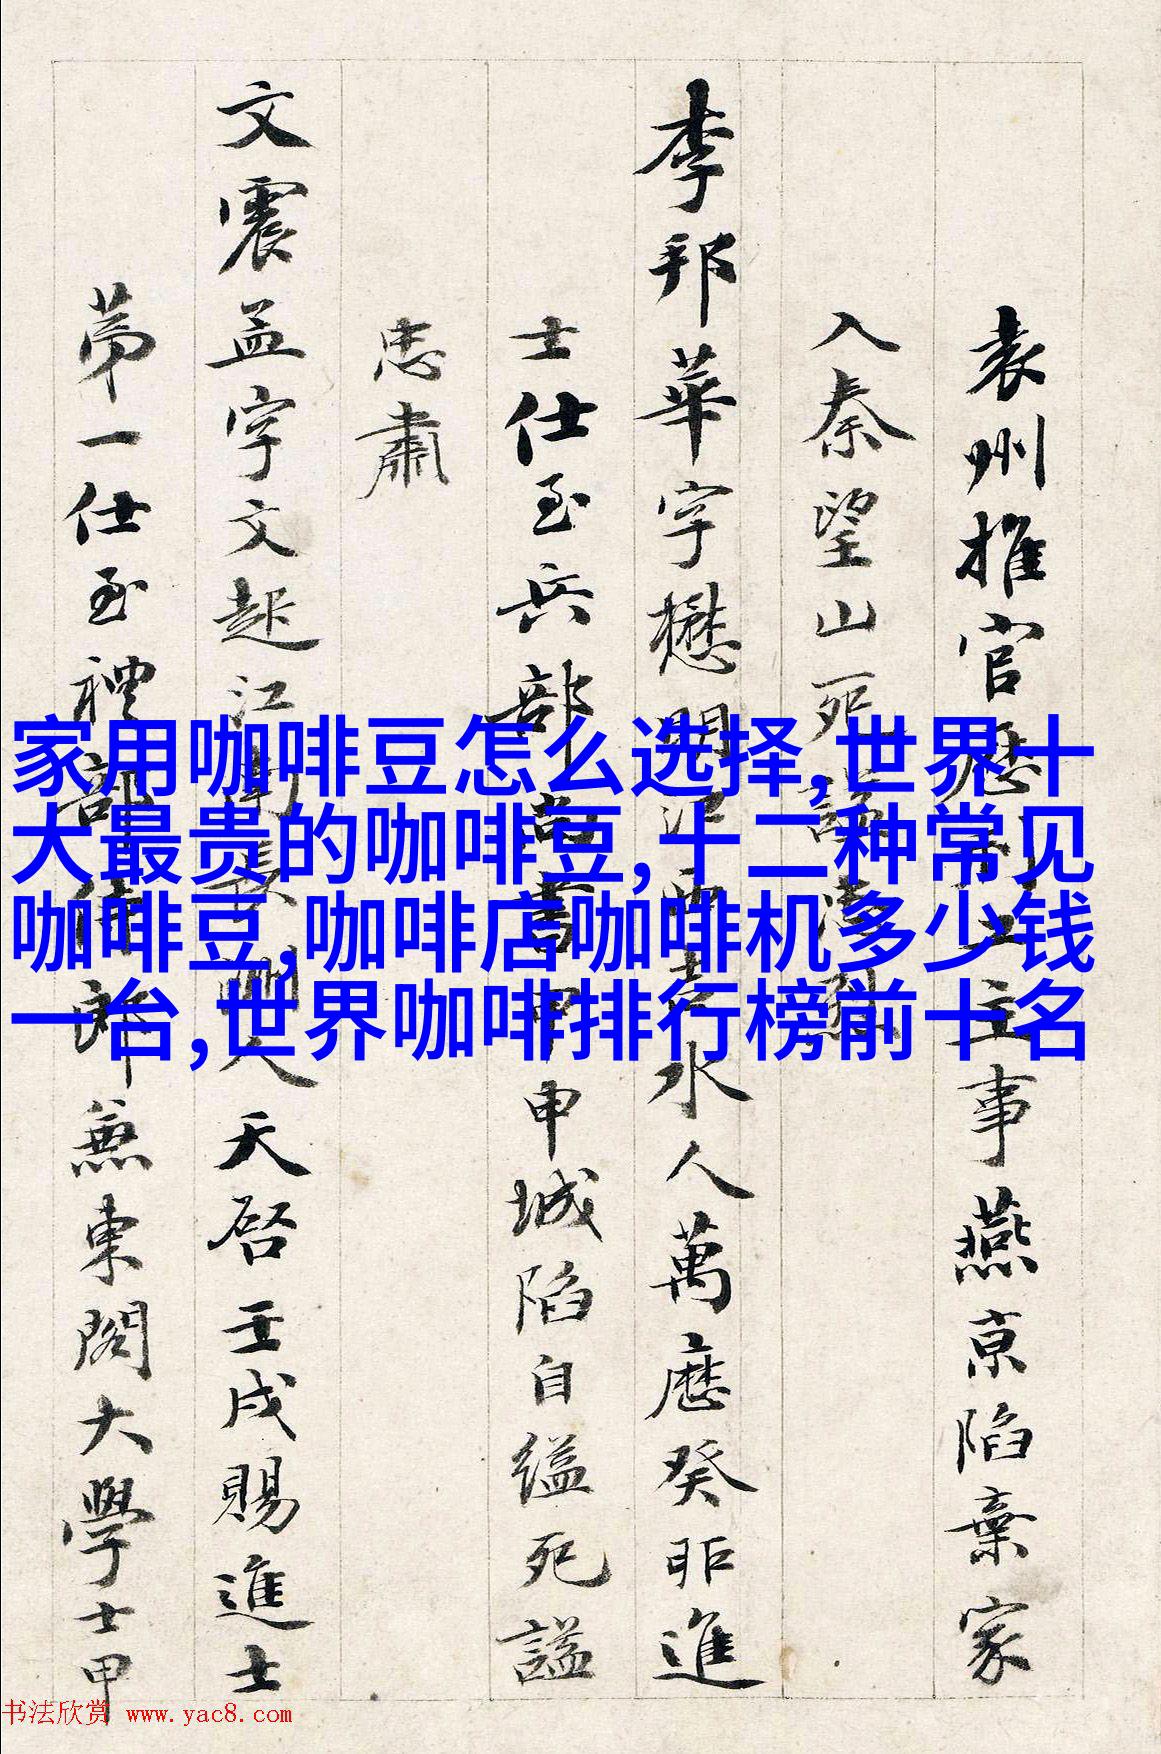 袁州推官歷
主事燕京陷棄家
入秦望山死諡
李邦華字懋明江西吉水人萬曆癸卯進
士仕至兵部尚書甲申城陷自縊死諡
忠肅
文震孟字文起江南長洲人天啓壬戌賜進士
第一仕至禮部侍郎兼東閣大學士甲
家用咖啡豆怎么选择,世界十
大最贵的咖啡豆,十二种常见
咖啡豆,咖啡店咖啡机多少钱
一台,世界咖啡排行榜前十名
书法欣赏 www.yac8.com